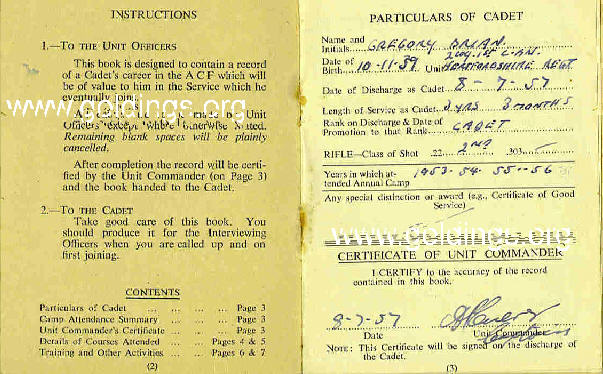 INSTRUCTIONS
1.—TO THE UNIT OFFICERS
This book is designed to contain a record
of a Cadet's career in the A C F which will
be of value to him in the Service which he
eventually joins.
www.goldings.org
made by Unit
Officers except where otherwise stated.
Remaining blank spaces will be plainly
cancelled.
After completion the record will be certi-
fied by the Unit Commander (on Page 3)
and the book handed to the Cadet.
2.—TO THE CADET
Take good care of this book. You
should produce it for the Interviewing
Officers when you are called up and on
first joining.
CONTENTS
Particulars of Cadet ... ... ... Page 3
Camp Attendance Summary ... ... Page 3
Unit Commander's Certificate ... ... Page 3
Details of Courses Attended ... ... Pages 4 & 5
Training and Other Activities ... ... Pages 6 & 7
(2)
PARTICULARS OF CADET
Name and
Initials GREGORY BRIAN.
Date of
Birth 10-11-39 Unit HERTFORDSHIRE REGT
Date of Discharge as Cadet 8-7-57
Length of Service as Cadet 3 YRS 3 MONTHS
Rank on Discharge & Date of
Promotion to that Rank CADET
RIFLE—Class of Shot .22 2ND .303
Years in which at-
tended Annual Camp 1953-54-55-56
Any special distinction or award (e.g., Certificate of Good
Service)
www.goldings.org
CERTIFICATE OF UNIT COMMANDER
I CERTIFY to the accuracy of the record
contained in this book.
8-7-57
Date Unit Commander
NOTE: This Certificate will be signed on the discharge of
the Cadet.
(3)